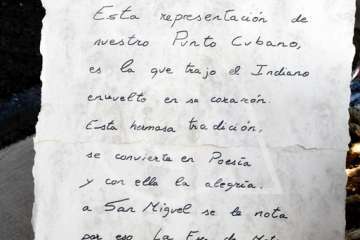 Esta representación de
nuestro Punto Cubano,
es la que trajo el Indiano
envuelto en su corazón.
Esta hermosa tradición,
se convierte en Poesía
y con ella la alegría.
a San Miguel se le nota
por eso La